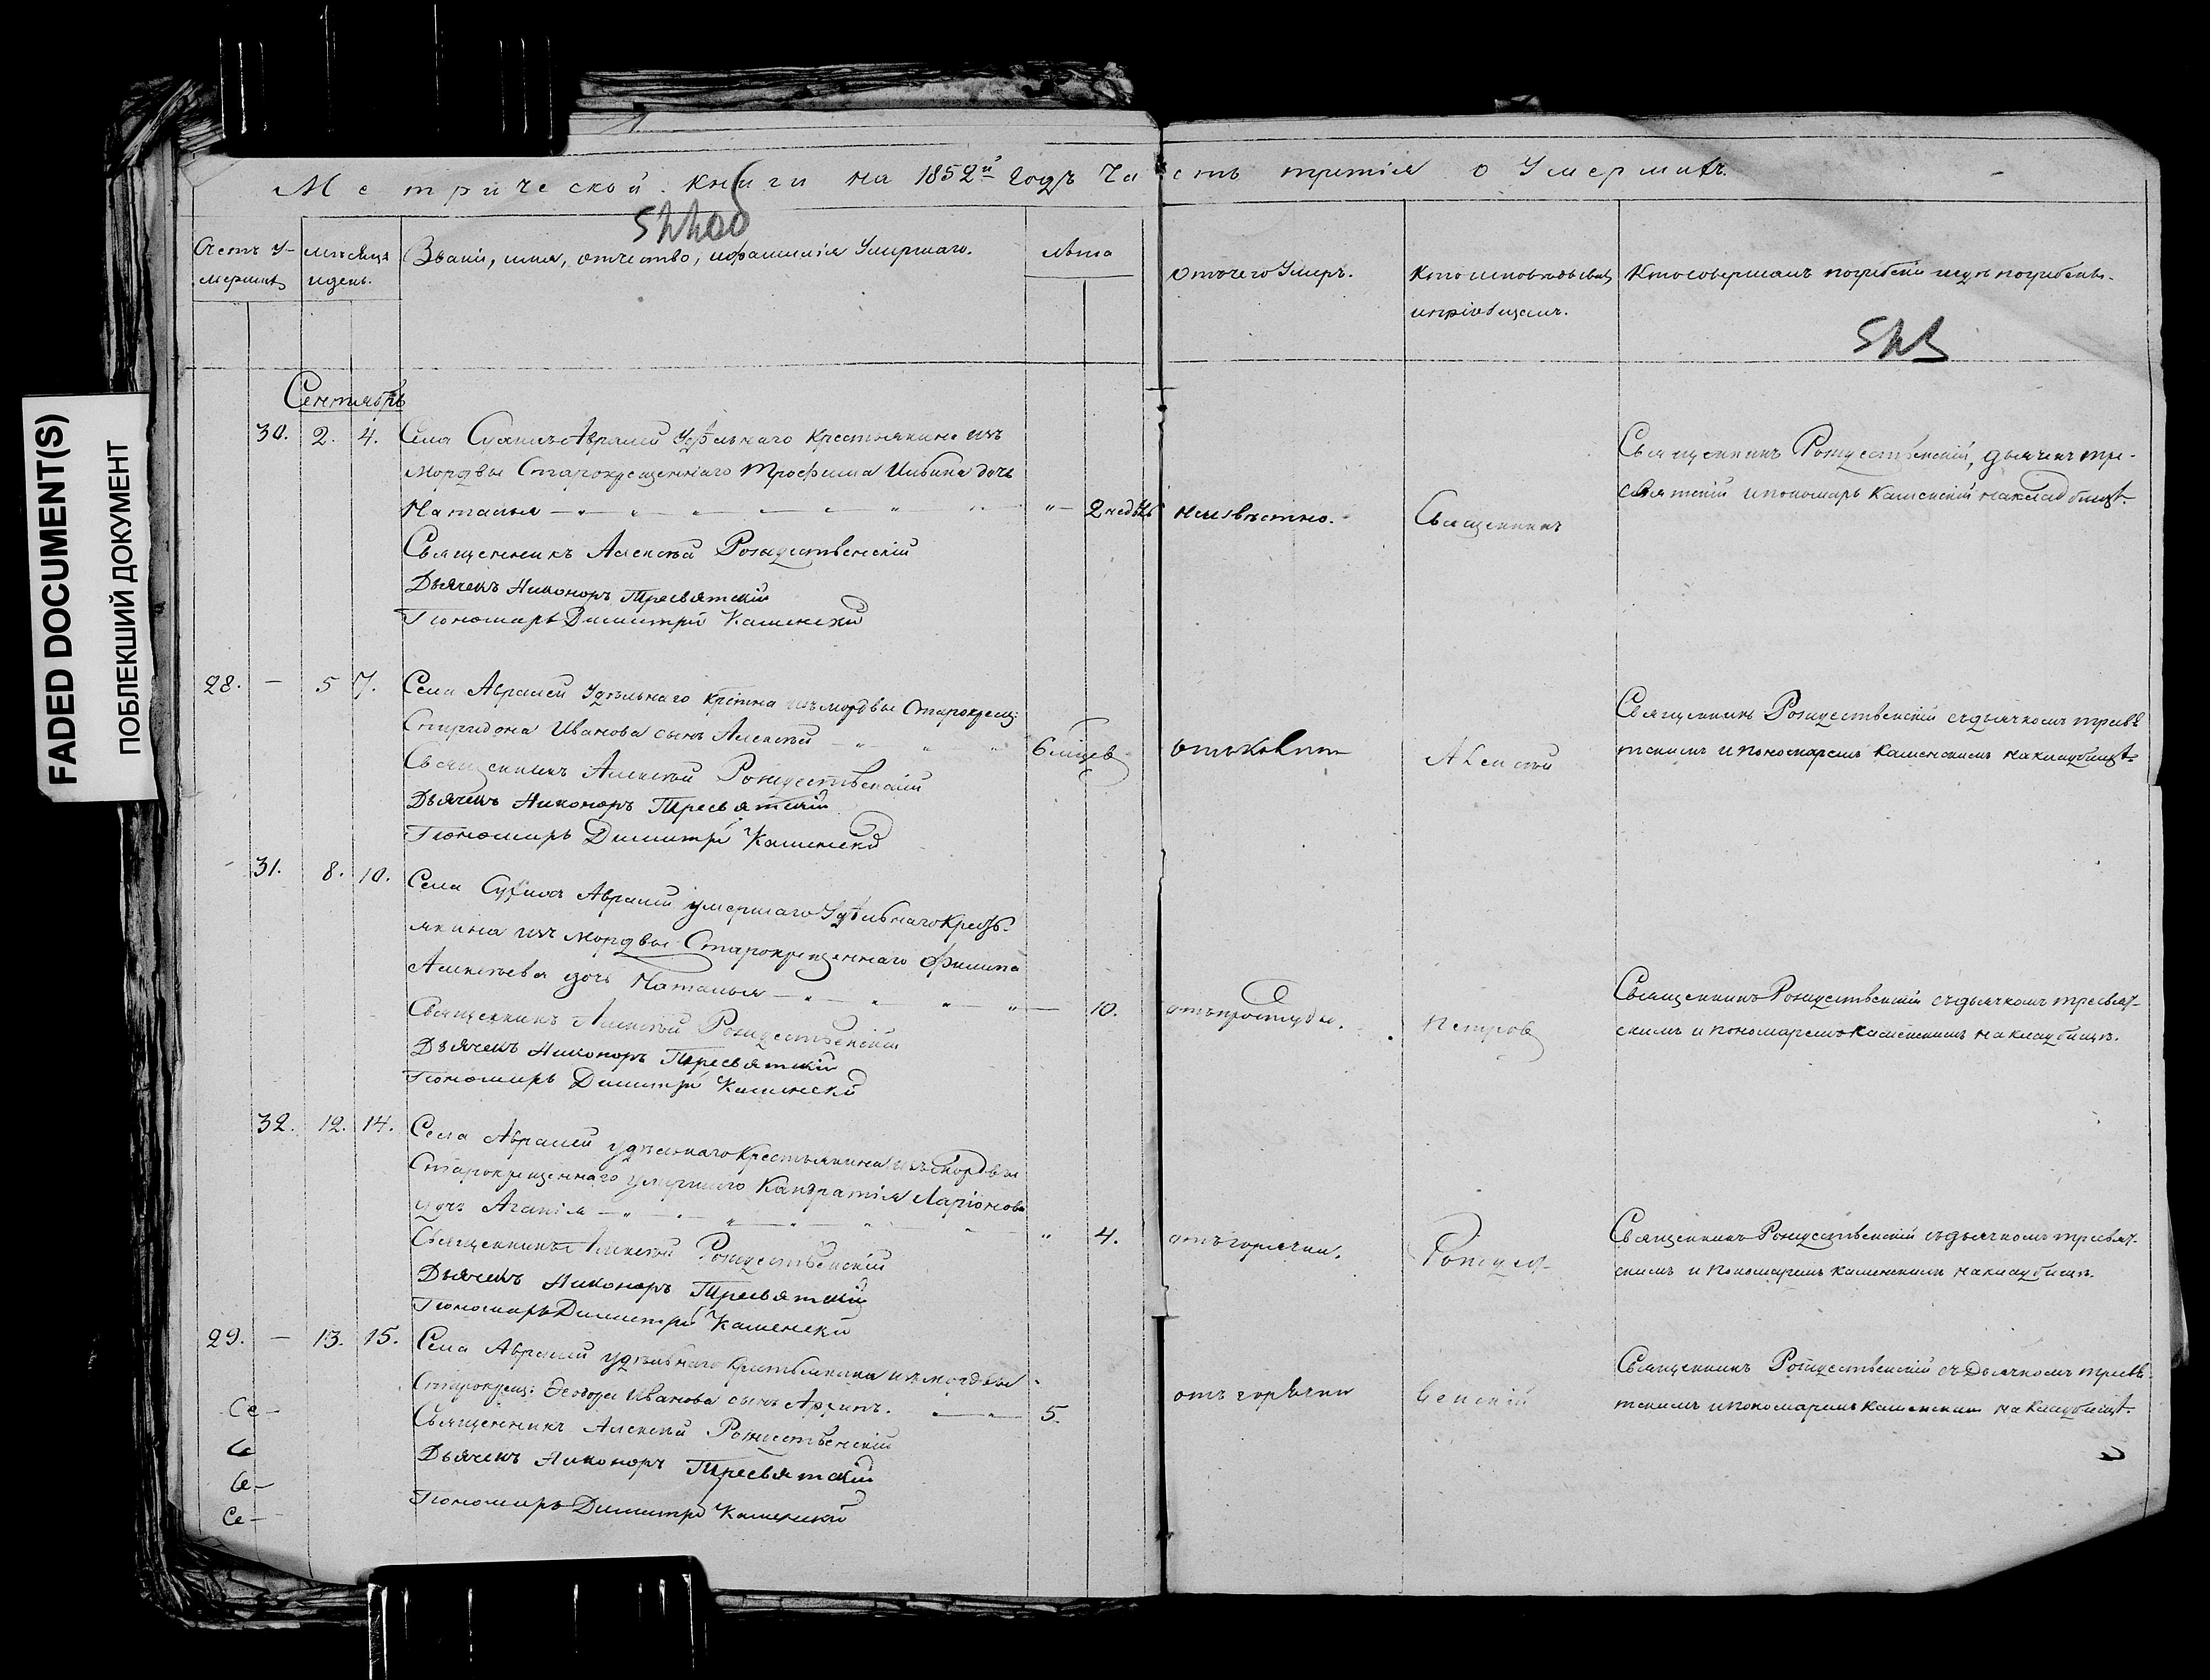 FADED DOCUMENT(S)
ПОБЛЕКШИЙ ДОКУМЕНТ
Метрической книги на 1852й годъ Часть третія о Умершихъ.
Счетъ У-
мершихъ
мѣсяцъ
и день.
Званіе, имя, отчество, и фамилія Умершаго.
лѣта
отъ чего Умеръ.
Кто исповѣдывалъ
и пріобщалъ.
Кто совершалъ погребеніе и гдѣ погребены.
544
Сентябрь
30. 2. 4. Села Авралей Удѣльнаго Крестьянина изъ
мордвы Старокрещеннаго Трофима Ильина дочь
Наталья 2 недѣль неизвѣстно. Священникъ
Священникъ Рождественскій, дьячекъ тре-
святскій и пономарь Каменскій на кладбищѣ.
Священникъ Алексѣй Рождественскій
Дьячекъ Никоноръ Тресвятскій
Пономарь Димитрій Каменскій
28. — 5 7. Села Авралей Удѣльнаго кр-нина изъ мордвы Старокрещ:
Спиридона Иванова сынъ Алексѣй 6 мцев Алексѣй
Священникъ Рождественскій съ дьячкомъ тресвя
тскимъ и пономаремъ Каменскимъ на кладбищѣ.
Священникъ Алексѣй Рождественскій
Дьячекъ Никоноръ Тресвятскій
Пономарь Димитрій Каменскій
31. 8. 10. Села Авралей умершаго Удѣльнаго Кресть-
янина изъ мордвы Старокрещеннаго Филипа
Алексѣева дочь Наталья 10. отъ простуды. Петровъ
Священникъ Рождественскій съ дьячкомъ тресвят-
скимъ и пономаремъ Каменскимъ на кладбищѣ.
Священникъ Алексѣй Рождественскій
Дьячекъ Никоноръ Тресвятскій
Пономарь Димитрій Каменскій
32. 12. 14. Села Авралей удѣльнаго Крестьянина изъ мордвы
Старокрещеннаго умершаго Кандратія Ларіонова
дочь Агапія 4. отъ горячки. Рождест-
Священникъ Рождественскій съ дьячкомъ тресвят-
скимъ и пономаремъ Каменскимъ на кладбищѣ.
Священникъ Алексѣй Рождественскій
Дьячекъ Никоноръ Тресвятскій
Пономарь Димитрій Каменскій
29. — 13. 15. Села Авралей удѣльнаго Крестьянина изъ мордвы
Старокрещ: Ѳеодора Иванова сынъ Архипъ. 5. отъ горячки венскій
Священникъ Рождественскій съ Дьячкомъ тресвя-
тскимъ и пономаремъ Каменскимъ на кладбищѣ.
Священникъ Алексѣй Рождественскій
Дьячекъ Никоноръ Тресвятскій
Пономарь Димитрій Каменскій
Се-
Се
Се-
Се-